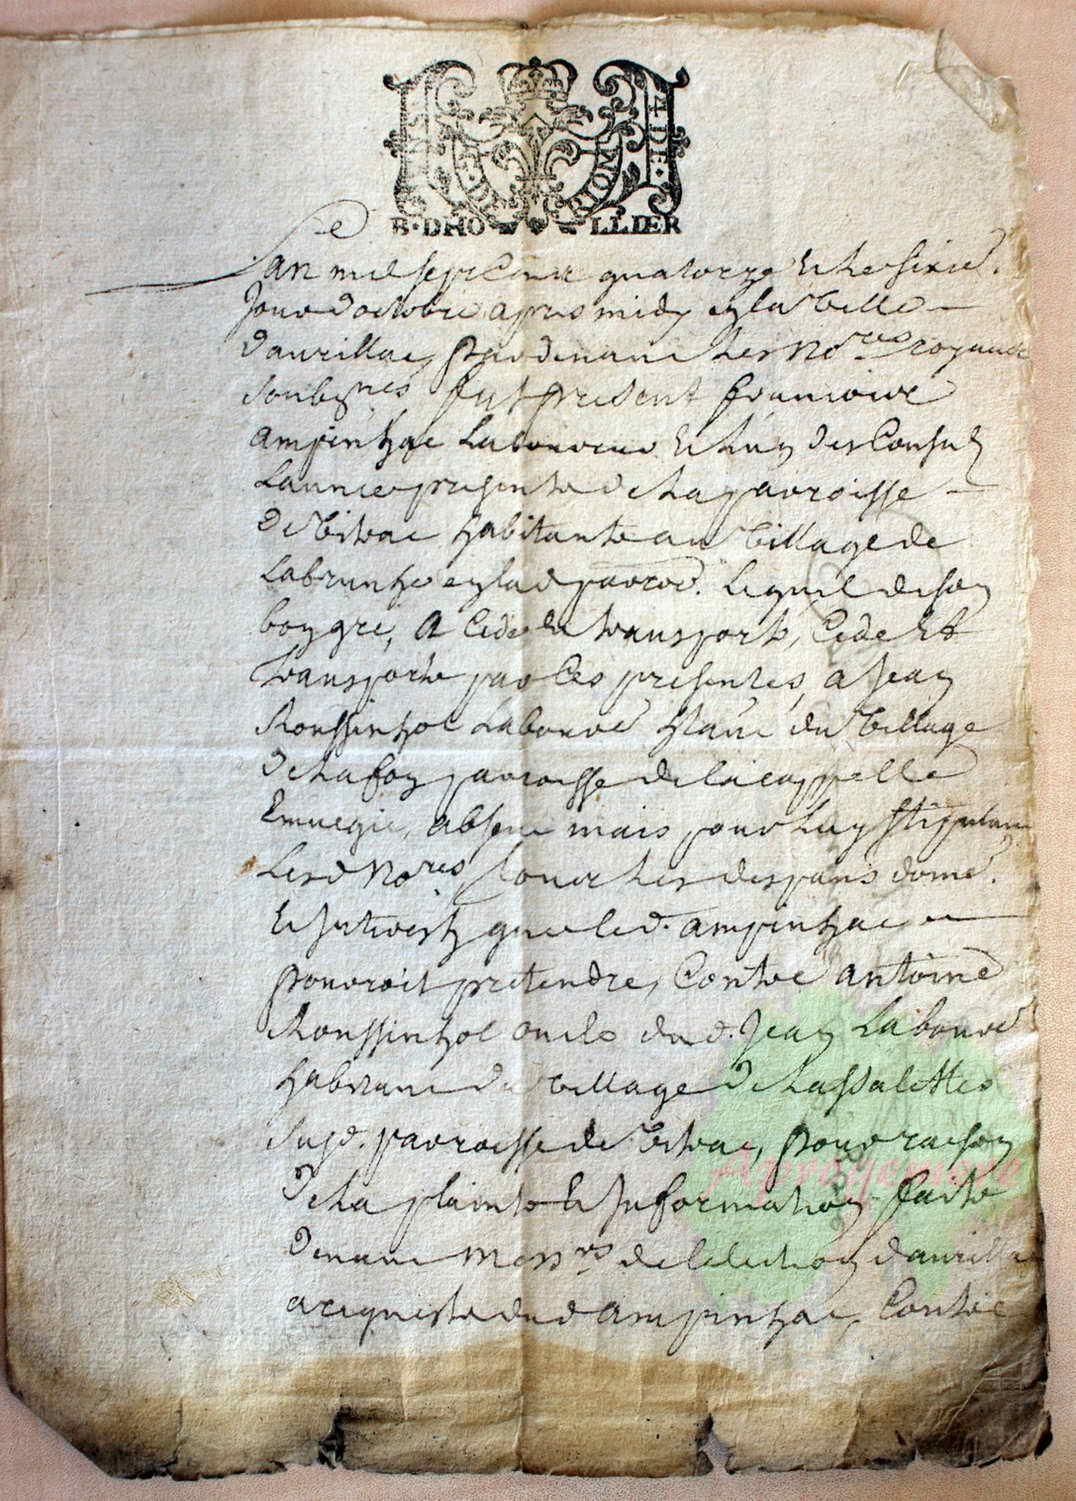 GE.DE.RIOM
B·DHO LLIER
Lan mil sept Cent quatorze Et le sixie.
Jour doctobre apres midy en la Ville
daurillac, pardevant Les No.res royaux
soubsignes fut present francoise
ampinhac Laboureur Et luy des Consulz
Lannee presente de La parroisse
de Vitrac habitante au Village de
Labrunhe en lad. parro.e Lequel de son
bon gre, A Cede et transporte, Cede Et
transporte par Ces presentes, a Jean
Roussinhol Laboure.r h'ant du Village
de Lafon parroisse de Lacappelle
absent mais pour Luy stipulant
Lesd. No.res tous Les despans dome.
Et Interestz que led. ampinhac
pouroit pretendre, Contre antoine
Roussinhol oncle dud. Jean Laboure.r
habitant du Village de Lassalettes
susd. parroisse de Vitrac, pour raison
de La plainte Et Information faite
devant Mess.rs de lelection daurillac
a requeste dud. ampinhac, Contre
Aprogemere